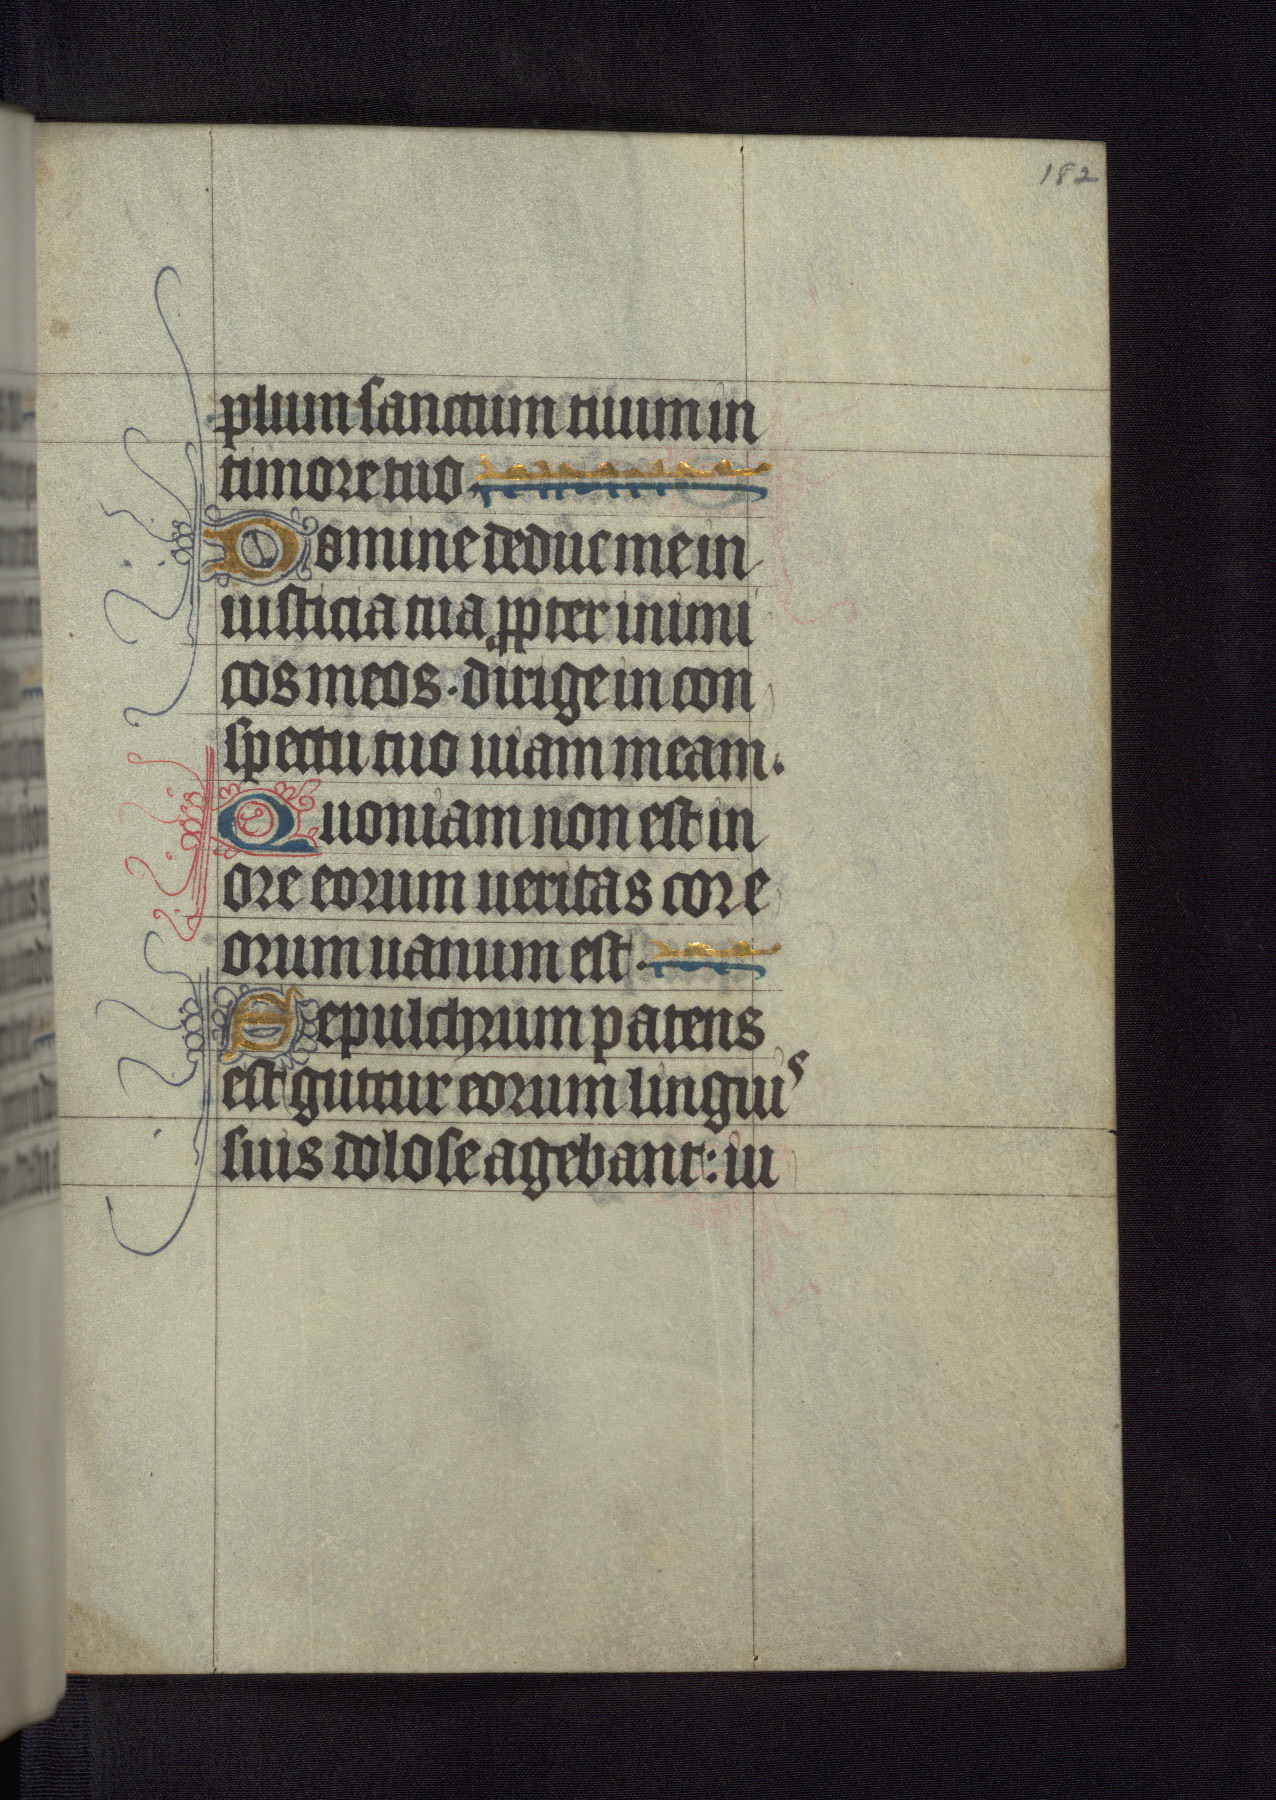 182
plum sanctum tuum in
timore tuo
Domine deduc me in
iusticia tua ꝓpter inimi
cos meos · dirige in con
spectu tuo uiam meam .
Quoniam non est in
ore eorum ueritas cor e
orum uanum est .
Sepulchrum patens
est guttur eorum linguis
suis dolose agebant : iu